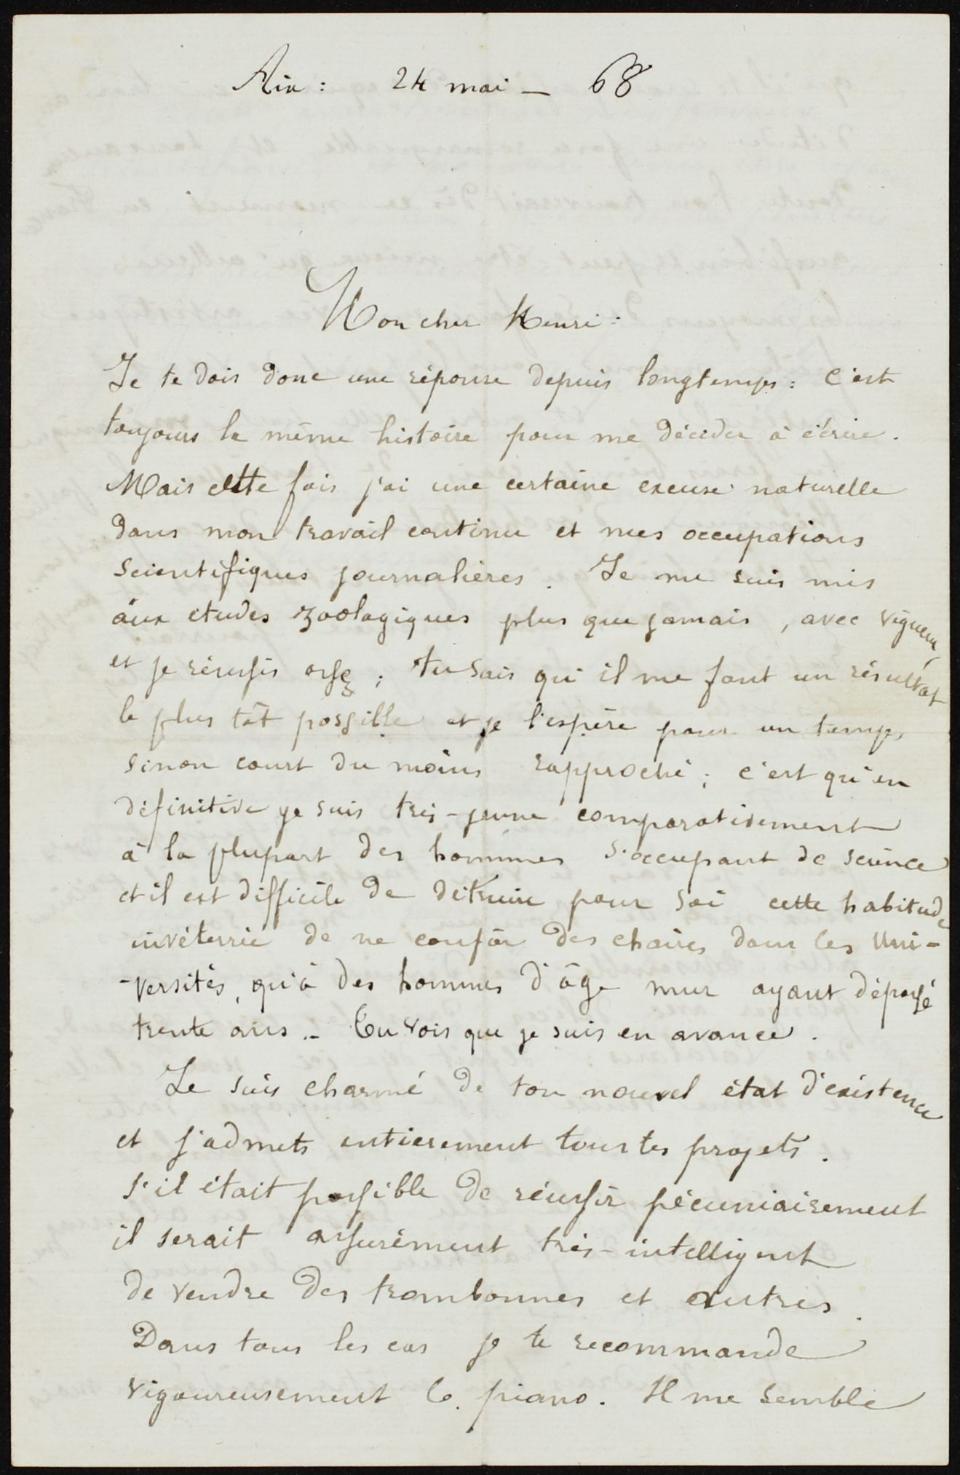 Aix : 24 mai — 68
Mon cher Henri :
Je te dois donc une réponse depuis longtemps : c'est
toujours la même histoire pour me décider à écrire.
Mais cette fois j'ai une certaine excuse naturelle
dans mon travail continu et mes occupations
scientifiques journalières. Je me suis mis
aux etudes zoologiques plus que jamais, avec vigueur,
et je réussis assez ; tu sais qu'il me faut un résultat
le plus tôt possible et je l'espère pour un temps
sinon court du moins rapproché ; c'est qu'en
définitive je suis très-jeune comparativement
à la plupart des hommes s'occupant de science
et il est difficile de détruire pour soi cette habitude
invéterrée de ne confier des chaires dans les Uni-
-versités, qu'à des hommes d'âge mur ayant dépassé
trente ans.. Tu vois que je suis en avance.
Je suis charmé de ton nouvel état d'existence
et j'admets entierement tous tes projets.
S'il était possible de réussir pécuniairement
il serait assurément très-intelligent
de vendre des trombonnes et autres.
Dans tous les cas je te recommande
vigoureusement le piano. Il me semble